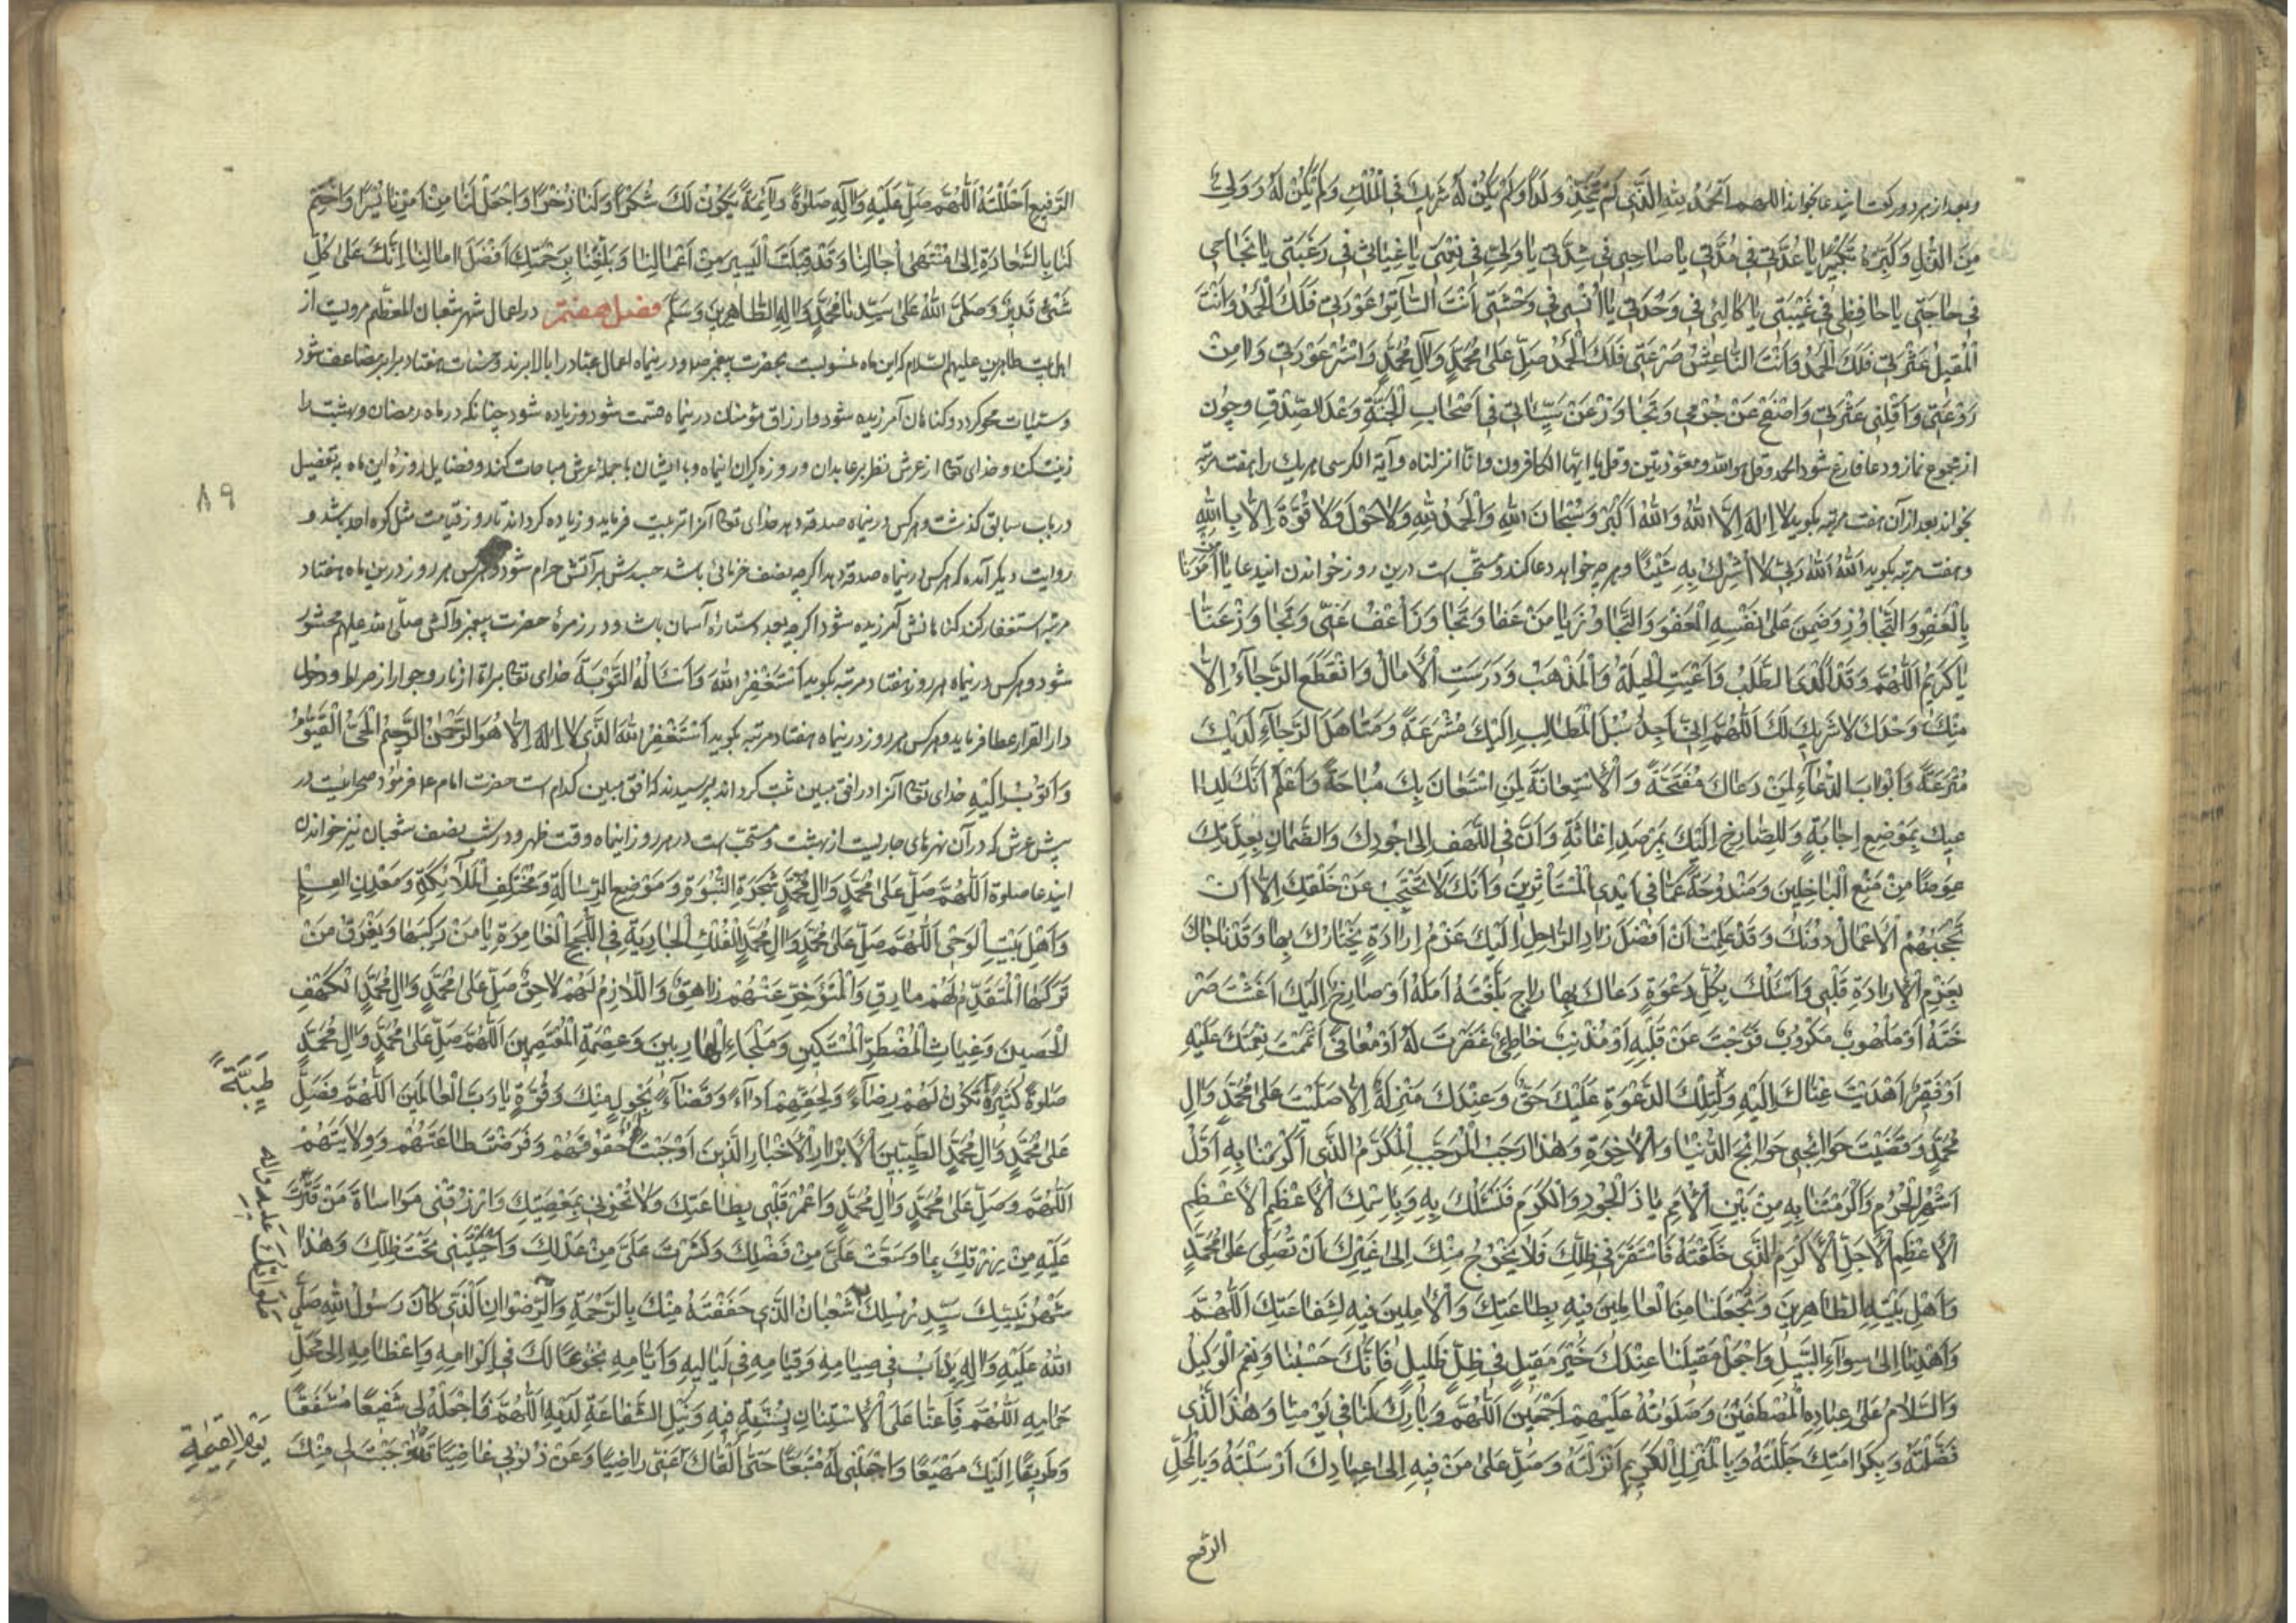 وبعد از هر دو ركعت اين دعا بخواند اللهم الحمد لله الذي لم يتخذ ولدا ولم يكن له شريك في الملك ولم يكن له ولي
من الذل وكبره تكبيرا يا عدتي في مدتي يا صاحبي في شدتي يا وليي في نعمتي يا غياثي في رغبتي يا نجاحي
في حاجتي يا حافظي في غيبتي يا كالئي في وحدتي يا انسي في وحشتي انت الساتر عورتي فلك الحمد وانت
المقيل عثرتي فلك الحمد وانت الناعش صرعتي فلك الحمد صل على محمد وآل محمد واستر عورتي وامن
روعتي واقلني عثرتي واصفح عن جرمي وتجاوز عن سيئاتي في اصحاب الجنة وعد الصدق وچون
از مجموع نماز ودعا فارغ شود الحمد وقل هو الله ومعوذتين وقل يا ايها الكافرون وانا انزلناه وآية الكرسى هر يك را هفت مرتبه
بخواند بعد از آن هفت مرتبه بكويد لا اله الا الله والله اكبر وسبحان الله والحمد لله ولا حول ولا قوة الا بالله
وهفت مرتبه بكويد الله الله ربي لا اشرك به شيئا وهر چه خواهد دعا كند ومستحب است درين روز خواندن اين دعا يا من امرنا
بالعفو والتجاوز وضمن على نفسه العفو والتجاوز يا من عفا وتجاوز اعف عني وتجاوز عنا
يا كريم اللهم وقد اكدى الطلب واعيت الحيلة والمذهب ودرست الامال وانقطع الرجاء الا
منك وحدك لا شريك لك اللهم اني اجد سبل المطالب اليك مشرعة ومناهل الرجاء لديك
مترعة وابواب الدعاء لمن دعاك مفتحة والاستعانة لمن استعان بك مباحة واعلم انك لدا
عيك بموضع اجابة وللصارخ اليك بمرصد اغاثة وان في اللهف الى جودك والضمان بعدتك
عوضا من منع الباخلين ومندوحة عما في ايدي المستأثرين وانك لا تحتجب عن خلقك الا ان
تحجبهم الاعمال دونك وقد علمت ان افضل زاد الراحل اليك عزم ارادة يختارك بها وقد ناجاك
بعزم الارادة قلبي واسئلك بكل دعوة دعاك بها راج بلغته امله او صارخ اليك اغثت صر
خته او ملهوب مكروب فرجت عن قلبه او مذنب خاطئ غفرت له او معافى اتممت نعمتك عليه
او فقير اهديت غناك اليه ولتلك الدعوة عليك حق وعندك منزلة الا صليت على محمد وال
محمد وقضيت حوائجي حوائج الدنيا والاخرة وهذا رجب المرجب المكرم الذي اكرمتنا به اول
اشهر الحرم واكرمتنا به من بين الامم يا ذا الجود والكرم فنسئلك به وباسمك الاعظم الاعظم
الاعظم الاجل الاكرم الذي خلقته فاستقر في ظلك فلا يخرج منك الى غيرك ان تصلي على محمد
واهل بيته الطاهرين وتجعلنا من العاملين فيه بطاعتك والاملين فيه لشفاعتك اللهم
واهدنا الى سواء السبيل واجعل مقيلنا عندك خير مقيل في ظل ظليل فانك حسبنا ونعم الوكيل
والسلام على عباده المصطفين وصلوته عليهم اجمعين اللهم وبارك لنا في يومنا وهذا الذي
فضلته وبكرامتك جللته وبالمنزل الكريم انزلته وصل على من فيه الى عبادك ارسلته وبالمحل
الرفيع احللته اللهم صل عليه واله صلوة دائمة يكون لك شكرا ولنا ذخرا واجعل لنا من امرنا يسرا واختم
لنا بالسعادة الى منتهى آجالنا وقد قبلت اليسير من اعمالنا وبلغنا برحمتك افضل امالنا انك على كل
شئ قدير وصلى الله على سيدنا محمد واله الطاهرين وسلم فصل هفتم در اعمال شهر شعبان المعظم مرويست از
اهل بيت طاهرين عليهم السلام كه اين ماه منسوبست بحضرت پيغمبر ص ودرينماه اعمال عباد را بالا برند وحسنات هفتاد برابر مضاعف شود
وسيئات محو كردد وكناهان آمرزيده شود وارزاق مؤمنان درينماه قسمت شود وزياده شود چنانكه در ماه رمضان وبهشت را
زينت كنند وخداى تعالى از عرش نظر بر عابدان وروزه كيران اينماه وبا ايشان با حمله عرش مباهات كند وفضايل روزه اين ماه به تفصيل
در باب سابق كذشت وهركس درينماه صدقه دهد خداى تعالى آنرا تربيت فرمايد وزياده كرداند تا روز قيامت مثل كوه احد باشد و
روايت ديكر آمده كه هركس درينماه صدقه دهد اكرچه نصف خرمائى باشد جسدش بر آتش حرام شود وهركس هر روز درين ماه هفتاد
مرتبه استغفار كند كناهانش آمرزيده شود اكرچه بعدد ستاره آسمان باشد ودر زمره حضرت پيغمبر وآلش صلى الله عليهم محشور
شود وهركس درينماه هر روز هفتاد مرتبه بكويد استغفر الله واسئاله التوبة خداى تعالى براة از نار وجواز از صراط ودخول
دار القرار عطا فرمايد وهركس هر روز درينماه هفتاد مرتبه بكويد استغفر الله الذي لا اله الا هو الرحمن الرحيم الحي القيوم
واتوب اليه خداى تعالى آنرا در افق مبين ثبت كرداند پرسيدند كه افق مبين كدام است حضرت امام ع فرمود صحرائيست در
پيش عرش كه در آن نهرهاى جاريست از بهشت ومستحب است در هر روز اينماه وقت ظهر ودر شب نصف شعبان نيز خواندن
اين دعا صلوة اللهم صل على محمد وال محمد شجرة النبوة وموضع الرسالة ومختلف الملائكة ومعدن العلم
واهل بيت الوحي اللهم صل على محمد وال محمد الفلك الجارية في اللجج الغامرة يا من ركبها ويغرق من
تركها المتقدم لهم مارق والمتؤخر عنهم زاهق واللازم لهم لاحق صل على محمد وال محمد الكهف
الحصين وغياث المضطر المستكين وملجاء الهاربين وعصمة المعتصمين اللهم صل على محمد وال محمد
صلوة كثيرة تكون لهم رضاء ولحقهم اداء وقضاء بحول منك وقوة يا رب العالمين اللهم فصل
طيبة
على محمد وال محمد الطيبين الابرار الاخيار الذين اوجبت حقوقهم وفرضت طاعتهم وولايتهم
اللهم وصل على محمد وال محمد واعمر قلبي بطاعتك ولا تخزني بمعصيتك وارزقني مواساة من قترت
عليه من رزقك بما وسعت علي من فضلك ونشرت علي من عدلك واحييتني تحت ظلك وهذا
شهر نبيك سيد رسلك شعبان الذي حففته منك بالرحمة والرضوان الذي كان رسول الله صلى
الله عليه واله يداب في صيامه وقيامه في لياليه وايامه بخوعا لك في اكرامه واعظامه الى محل
حمامه اللهم فاعنا على الاستنان بسنته فيه ونيل الشفاعة لديه اللهم واجعله لي شفيعا مشفعا
وطريقا اليك مهيعا واجعلني له متبعا حتى القاك عني راضيا وعن ذنوبي غاضيا قد اوجبت لي منك
يوم القيمة
صلواتك عليه واله
٨٩
الرفيع